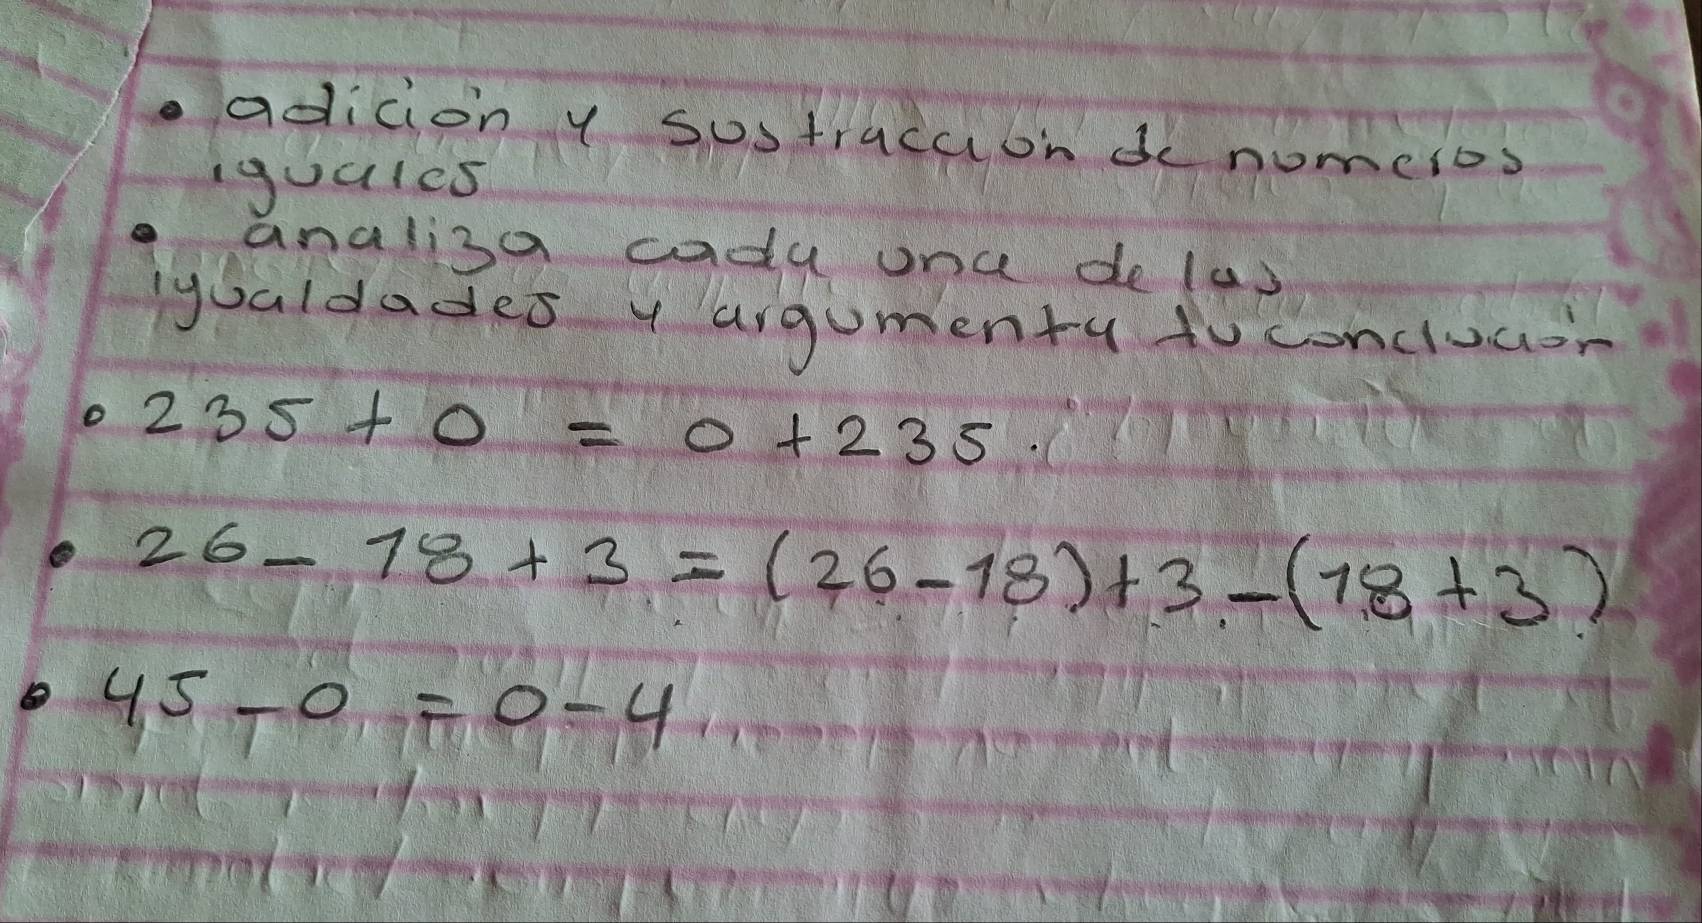 • adición y sustracción de numeros
iguales
• analiza cada una de las
igualdades y argumenta tu conclución
• 235 + 0 = 0 + 235.
• 26 - 18 + 3 = (26 - 18) + 3 - (18 + 3)
• 45 - 0 = 0 - 4